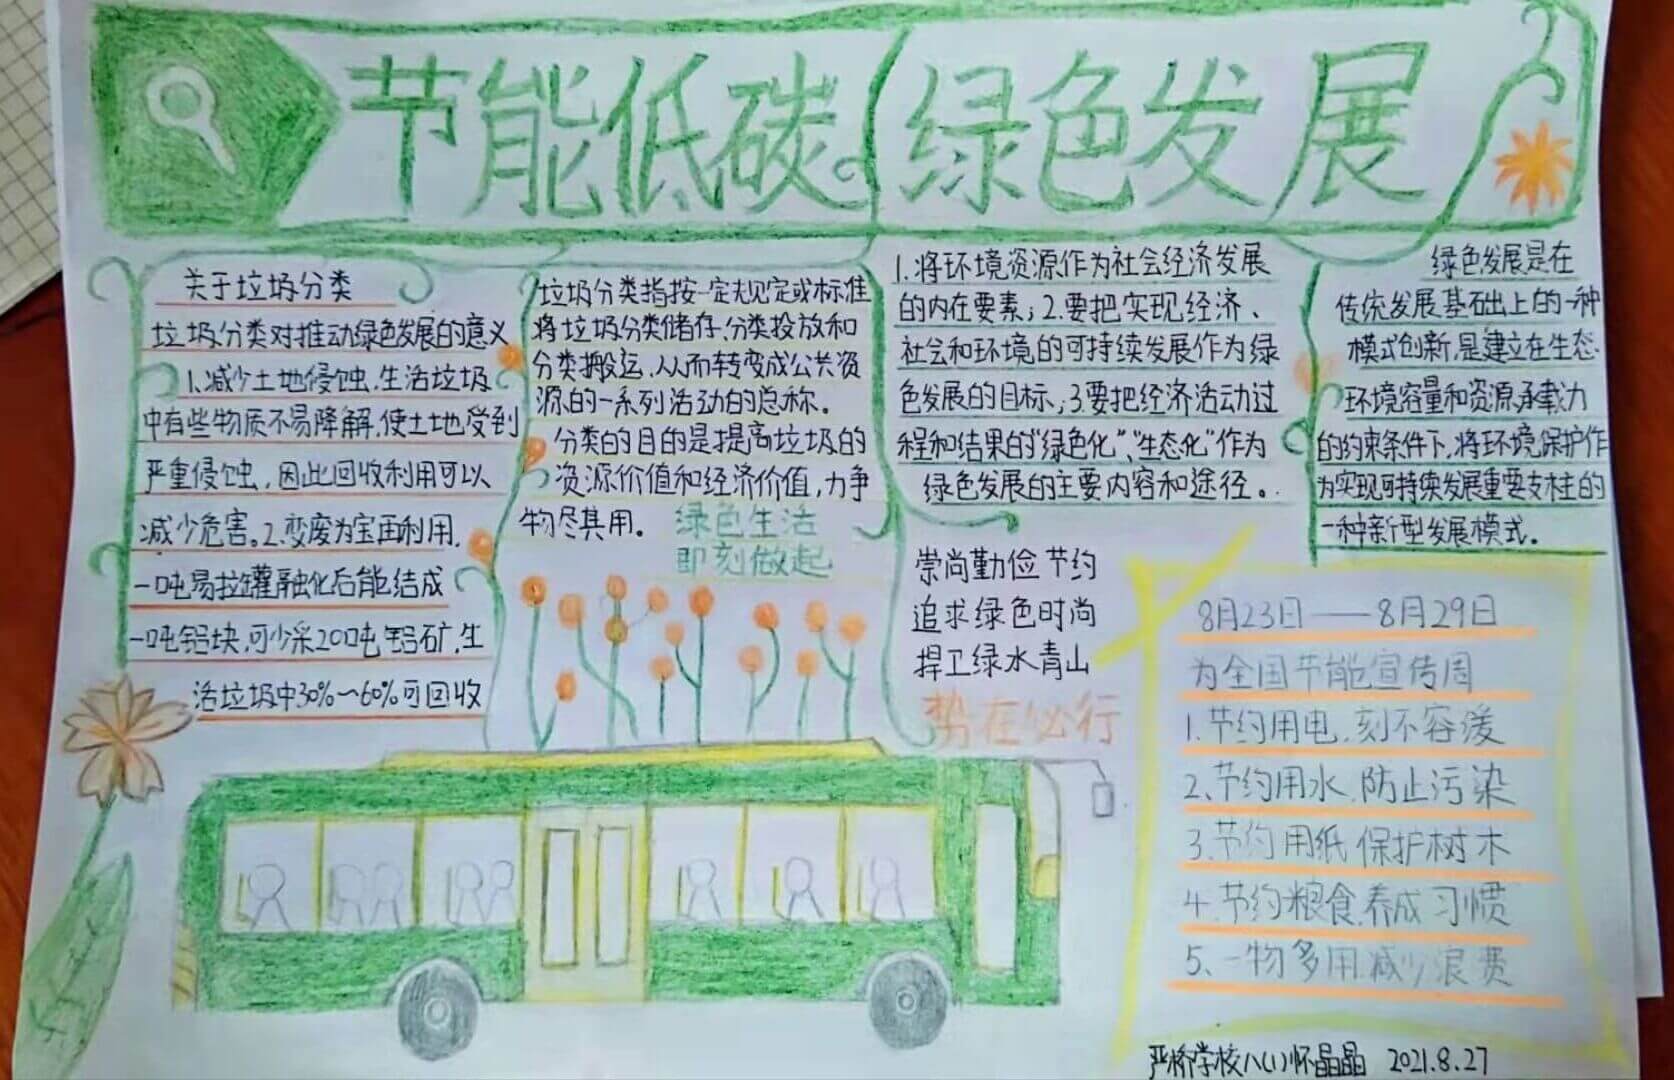 节能低碳 绿色发展
关于垃圾分类
垃圾分类对推动绿色发展的意义
1.减少土地侵蚀,生活垃圾
中有些物质不易降解,使土地受到
严重侵蚀,因此回收利用可以
减少危害。2.变废为宝再利用,
一吨易拉罐融化后能结成
一吨铝块,可少采20吨铝矿,生
活垃圾中30%~60%可回收
垃圾分类指按一定规定或标准
将垃圾分类储存、分类投放和
分类搬运,从而转变成公共资
源的一系列活动的总称。
分类的目的是提高垃圾的
资源价值和经济价值,力争
物尽其用。
绿色生活
即刻做起
1.将环境资源作为社会经济发展
的内在要素;2.要把实现经济、
社会和环境的可持续发展作为绿
色发展的目标;3.要把经济活动过
程和结果的“绿色化”、“生态化”作为
绿色发展的主要内容和途径。
崇尚勤俭节约
追求绿色时尚
捍卫绿水青山
势在必行
绿色发展是在
传统发展基础上的一种
模式创新,是建立在生态
环境容量和资源承载力
的约束条件下,将环境保护作
为实现可持续发展重要支柱的
一种新型发展模式。
8月23日——8月29日
为全国节能宣传周
1.节约用电,刻不容缓
2、节约用水,防止污染
3.节约用纸 保护树木
4.节约粮食,养成习惯
5、一物多用,减少浪费
严桥学校八(1)怀晶晶 2021.8.27